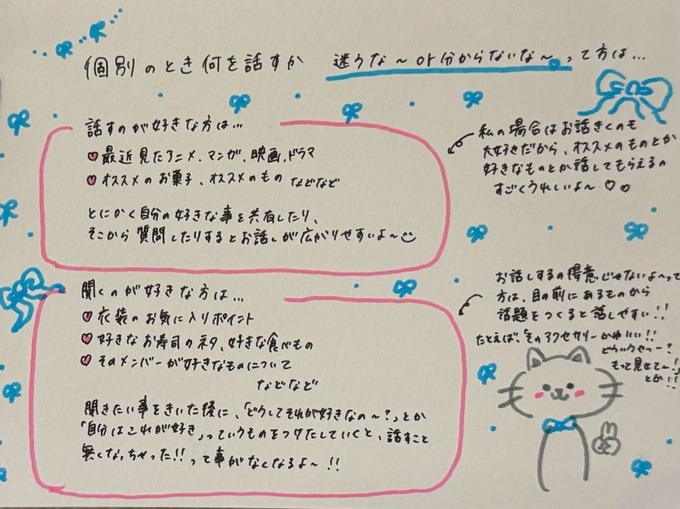 個別のとき何を話すか 迷うな〜or分からないな〜って方は...
話すのが好きな方は...
最近見たアニメ、マンガ、映画、ドラマ
オススメのお菓子、オススメのもの などなど
とにかく自分の好きな事を共有したり、
そこから質問したりするとお話しが広がりやすいよ〜
私の場合はお話きくのも
大好きだから、オススメのものとか
好きなものとか話してもらえるの
すごくうれしいよ〜♡
聞くのが好きな方は...
衣装のお気に入りポイント
好きなお寿司のネタ、好きな食べもの
そのメンバーが好きなものについて
などなど
聞きたい事をきいた後に、「どうしてそれが好きなの〜?」とか
「自分はこれが好き」っていうものをつけたしていくと、話すこと
無くなっちゃった!!って事がなくなるよ〜!!
お話しするの得意じゃないよ〜って
方は、目の前にあるものから
話題をつくると話しやすい!!
たとえば、「そのアクセサリーかわいい!!
どういうやつー?
もって見せて〜!」
とか!!